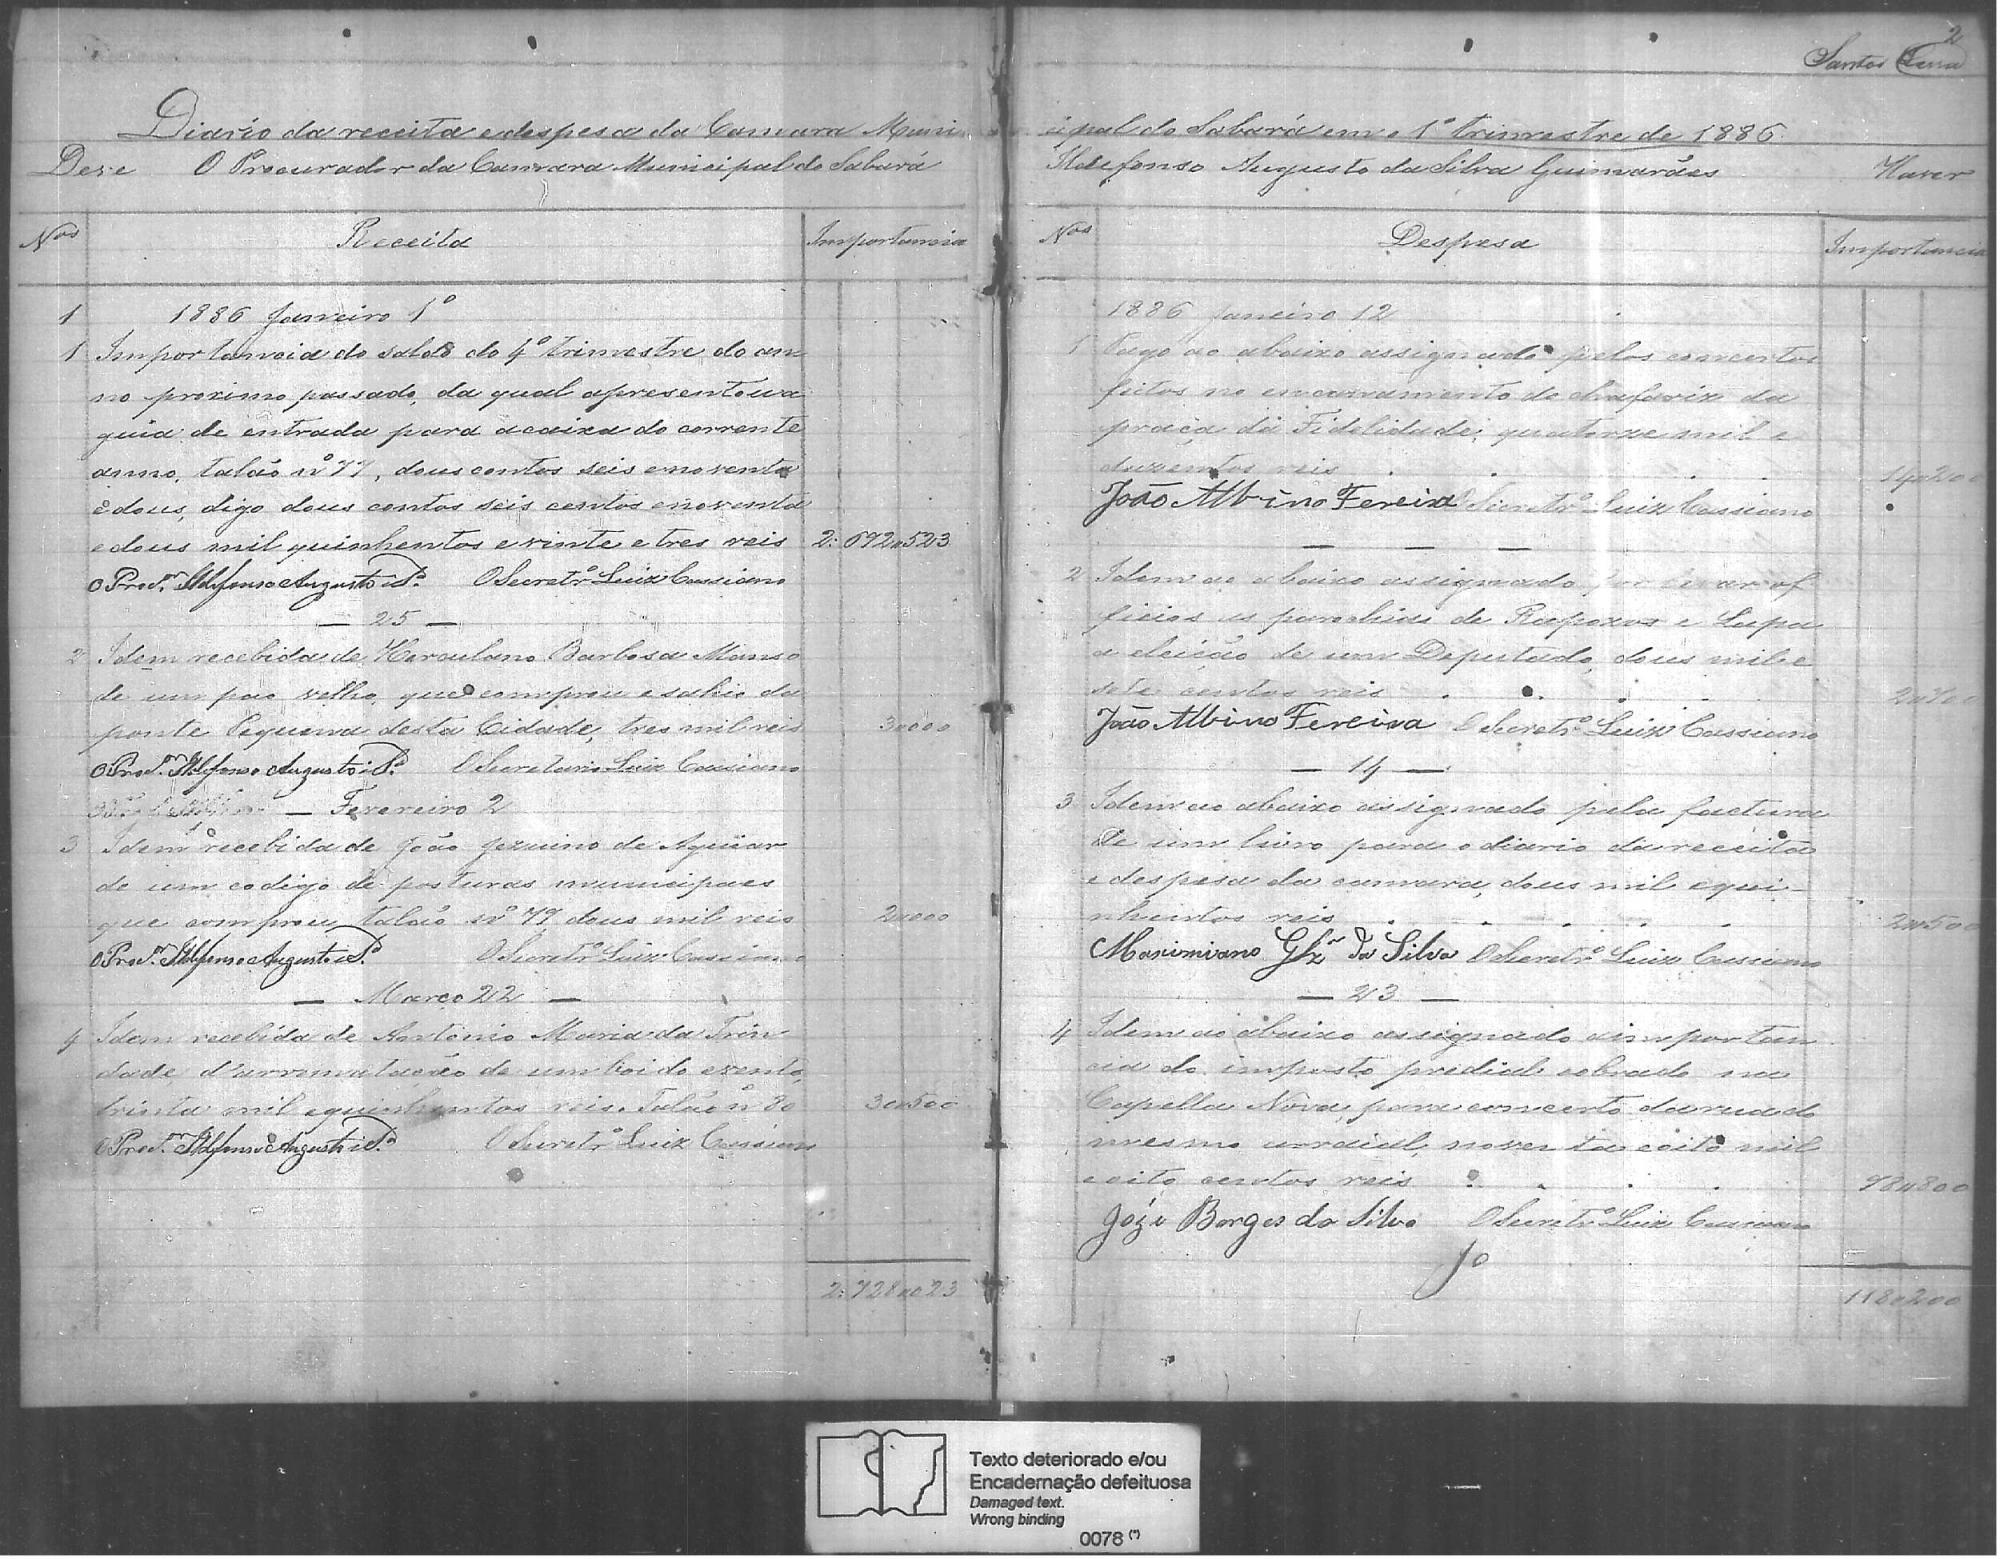 2
Santos
Diario da receita e despesa da Camara Muni
Deve O Procurador da Camara Municipal do Sabará
Nos Receita Importancia
1 1886 Janeiro 1º
1 Importancia do saldo do 4º trimestre do an
no proximo passado, da qual apresentou a
guia de entrada para a caixa do corrente
anno, talão nº 77, dous contos seis e noventa
e dous, digo dous contos seis centos e noventa
e dous mil quinhentos e vinte e tres reis 2:692$523
O Procr. Ildefonso Augusto da Sª O Secretrº Luiz Cassiano
— 25 —
2 Idem recebida de Herculano Barbosa Manso
de um pao velho, que comprou e sahio da
ponte Pequena desta Cidade, tres mil reis 3$000
O Procr. Ildefonso Augusto da Sª O Secretario Luiz Cassiano
— Fevereiro 2
3 Idem recebida de João Jezuino de Aguiar
de um codigo de posturas municipaes
que comprou, talão nº 79 dous mil reis 2$000
O Procr. Ildefonso Augusto da Sª O Secretrº Luiz Cassiano
— Março 22 —
4 Idem recebida de Antonio Maria da Trin
dade, d'arrematação de um boi do evento,
trinta mil e quinhentos reis. Talão nº 80 30$500
O Procr. Ildefonso Augusto da Sª O Secretrº Luiz Cassiano
2:728$023
cipal do Sabará em o 1º trimestre de 1886.
Ildefonso Augusto da Silva Guimarães Haver
Nos Despesa Importancia
1886 Janeiro 12
1 Pago ao abaixo assignado pelos concertos
feitos no encanamento do chafariz da
praça da Fidelidade, quatorze mil e
duzentos reis 14$200
João Albino Fereira O Secretrº Luiz Cassiano
— — —
2 Idem ao abaixo assignado por levar of
ficios as parochias de Rapozos e Lapa
a eleição de um Deputado, dous mil e
sete centos reis 2$700
João Albino Fereira O Secretrº Luiz Cassiano
— 14 —
3 Idem ao abaixo assignado pela factura
de um livro para o diario da receita
e despesa da camara, dous mil e qui-
nhentos reis 2$500
Maximiano Glz da Silva O Secretrº Luiz Cassiano
— 23 —
4 Idem ao abaixo assignado a importan
cia do imposto predial cobrado na
Capella Nova, para concerto da rua do
mesmo arraial, noventa e oito mil
e oito centos reis 98$800
Joze Borges da Silva O Secretrº Luiz Cassiano
118$200
Texto deteriorado e/ou
Encadernação defeituosa
Damaged text.
Wrong binding
0078 (*)